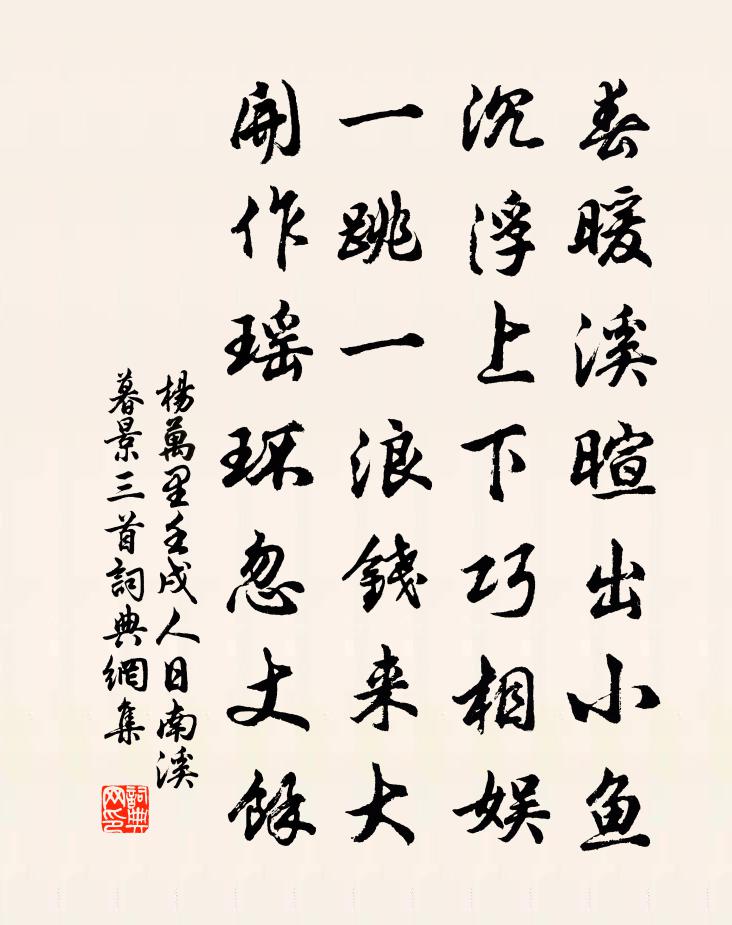 春暖溪暄出小鱼
沉浮上下巧相娱
一跳一浪錢来大
開作瑶环忽丈餘
楊萬里壬戌人日南溪
暮景三首詞典網集
詞典网印